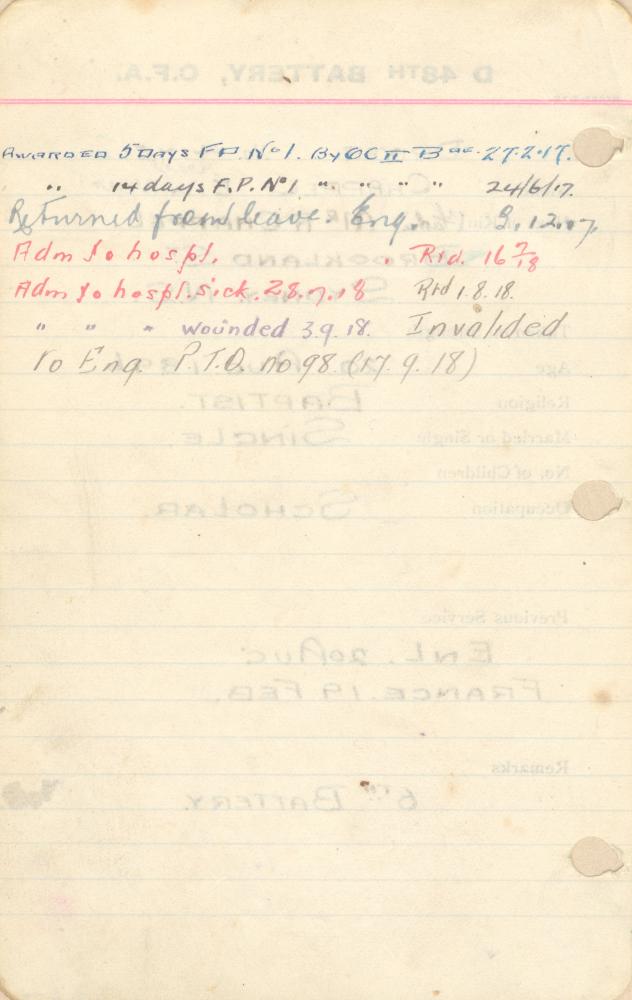 AWARDED 5 DAYS F.P. No 1. By OC II Bde. 27.2.17.
" 14 days F.P. No 1 " " " " 24/6/17.
Returned from leave. Eng. 9.12.17.
Adm to hospl. . Rtd. 16 7/18
Adm to hospl. sick. 28.7.18 Rtd 1.8.18.
" " " wounded 3.9.18. Invalided
To Eng. P.T.O. no 98 (17.9.18)